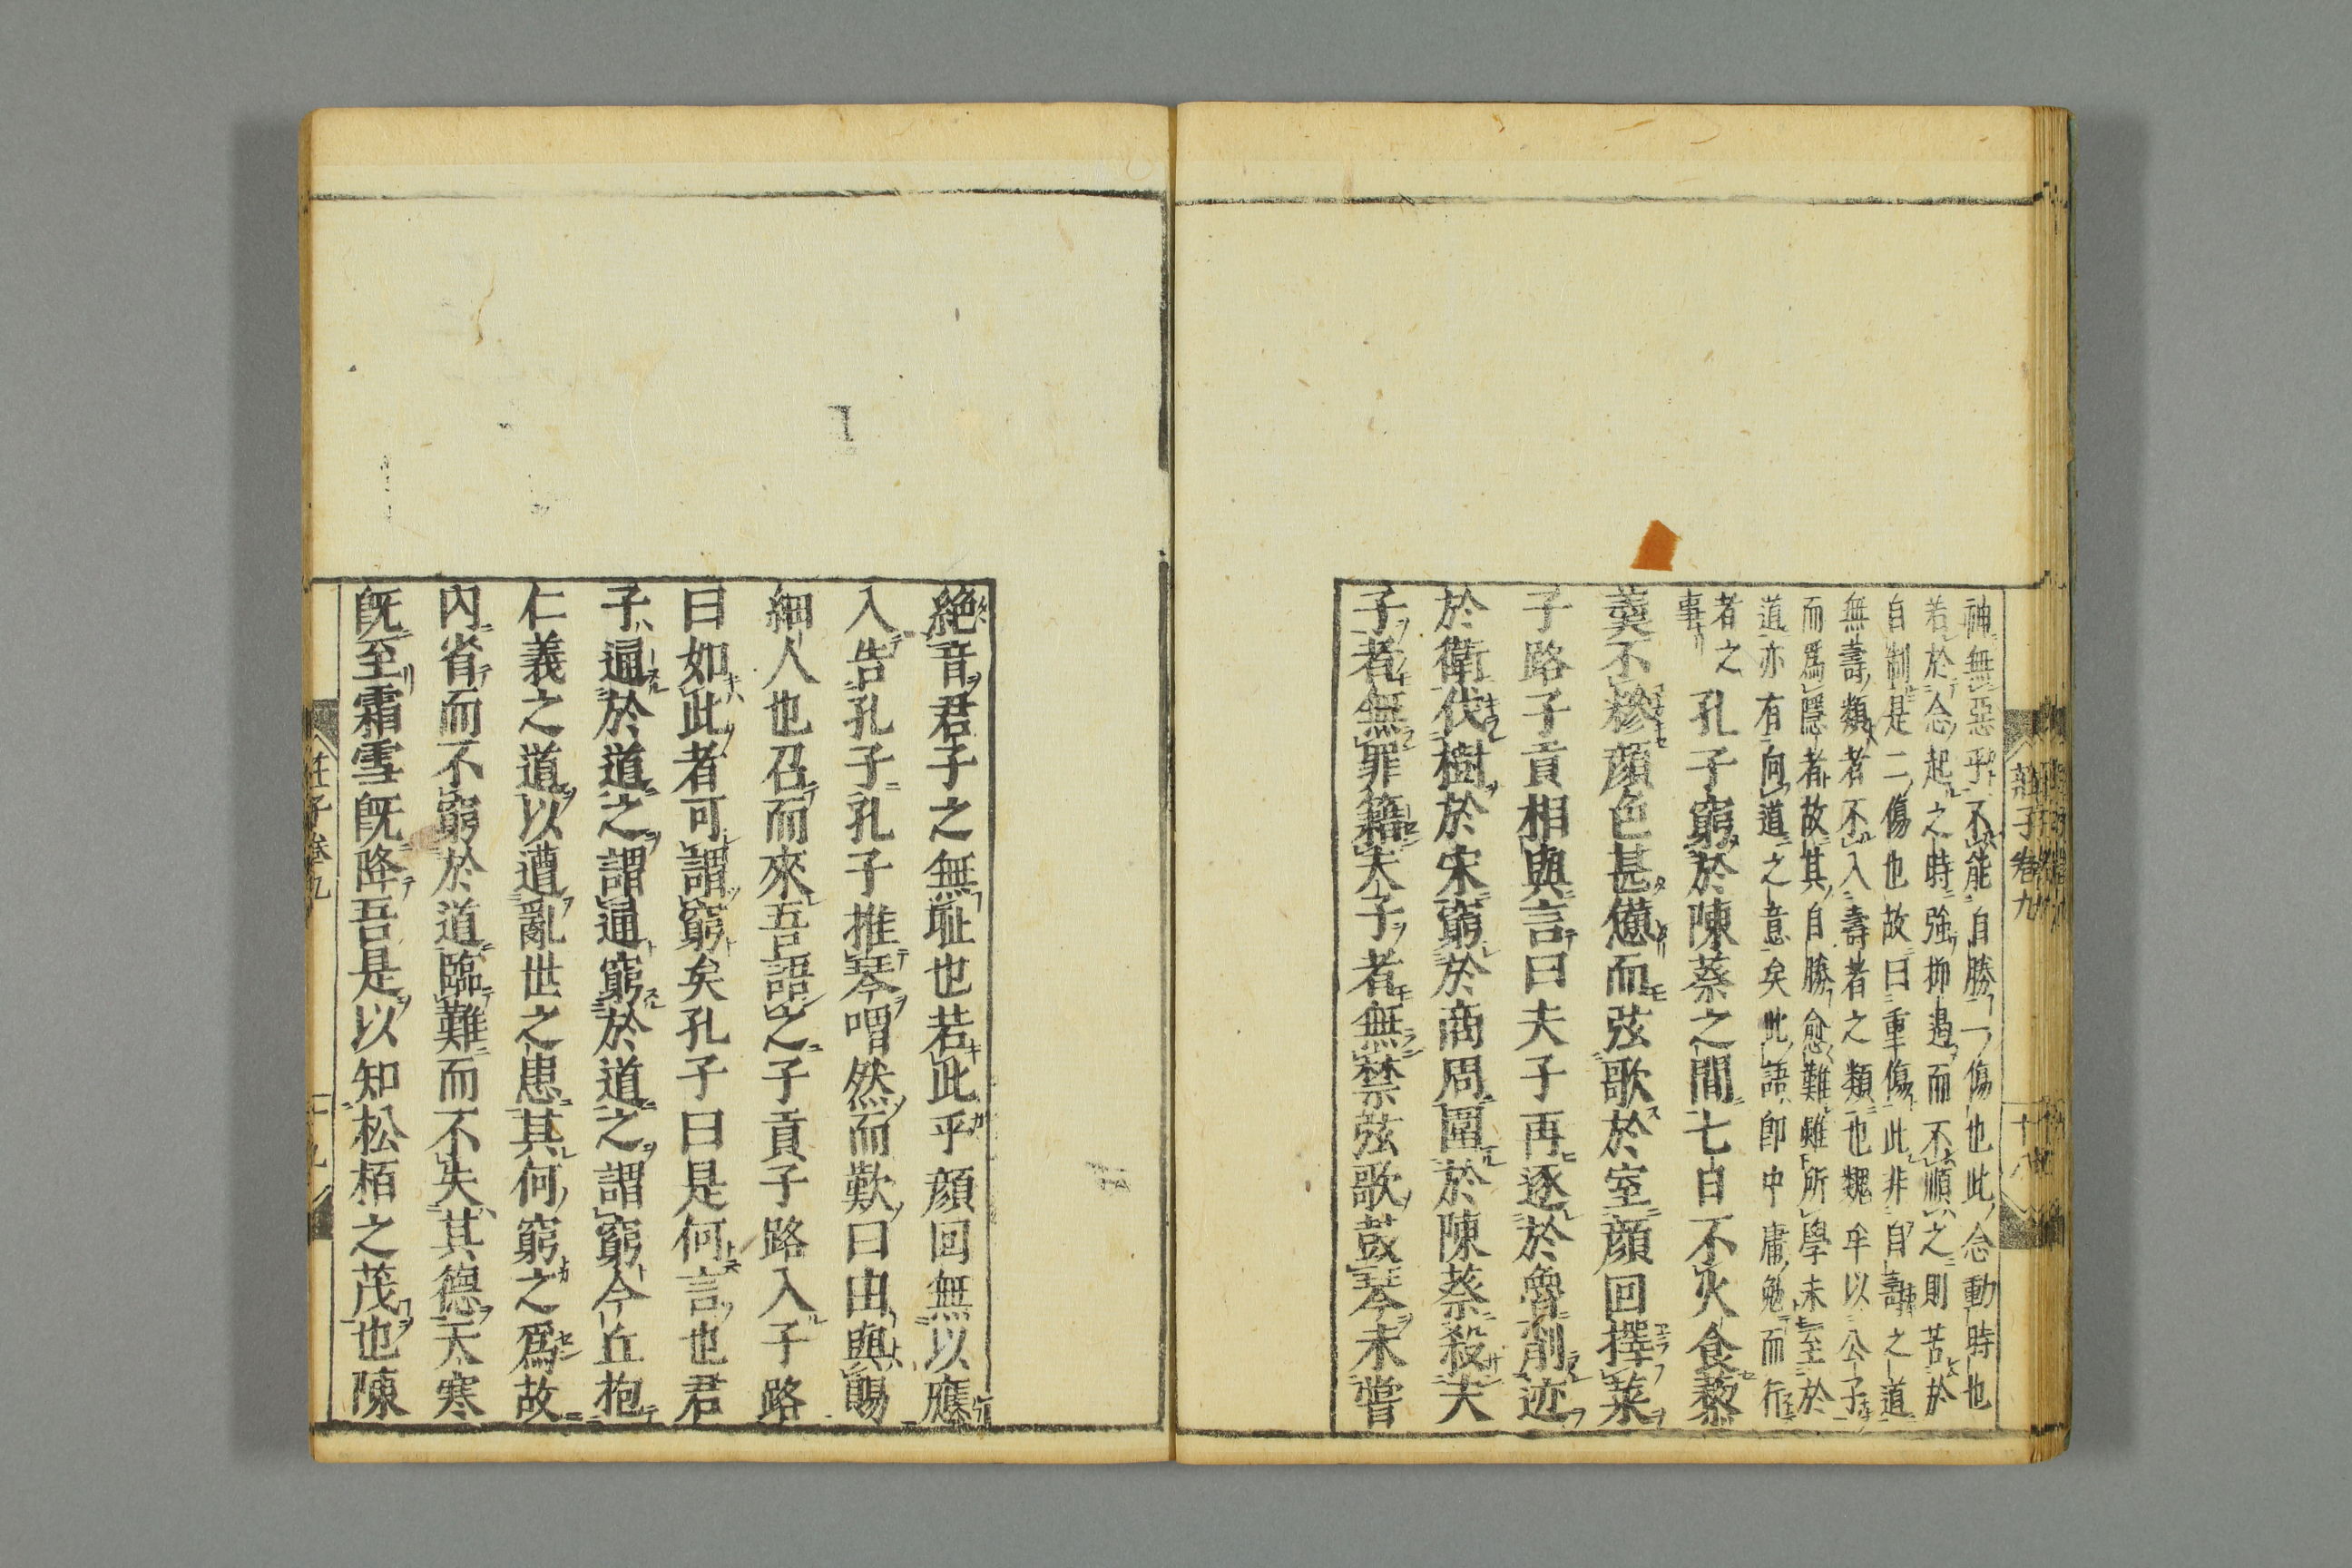 神無惡乎不能自勝一傷也此念動時也
若於念起之時強抑遏而不順之則苦於
自制是二傷也故曰重傷此非自壽之道
無壽類者不入壽者之類也魏牟以公子
而爲隱者故其自勝愈難雖所學未至於
道亦有向道之意矣此語卽中庸勉而行
者之
事
孔子窮於陳蔡之間七日不火食藜
羹不糝顔色甚憊而弦歌於室顔回擇菜
子路子貢相與言曰夫子再逐於魯削迹
於衛伐樹於宋窮於商周圍於陳蔡殺夫
子者無罪籍夫子者無禁弦歌鼓琴未嘗
莊子卷九
十八
絶音君子之無耻也若此乎顔回無以應
入告孔子孔子推琴喟然而歎曰由與賜
細人也召而來吾語之子貢子路入子路
曰如此者可謂窮矣孔子曰是何言也君
子通於道之謂通窮於道之謂窮今丘抱
仁義之道以遭亂世之患其何窮之爲故
內省而不窮於道臨難而不失其德天寒
旣至霜雪旣降吾是以知松栢之茂也陳
莊子卷九